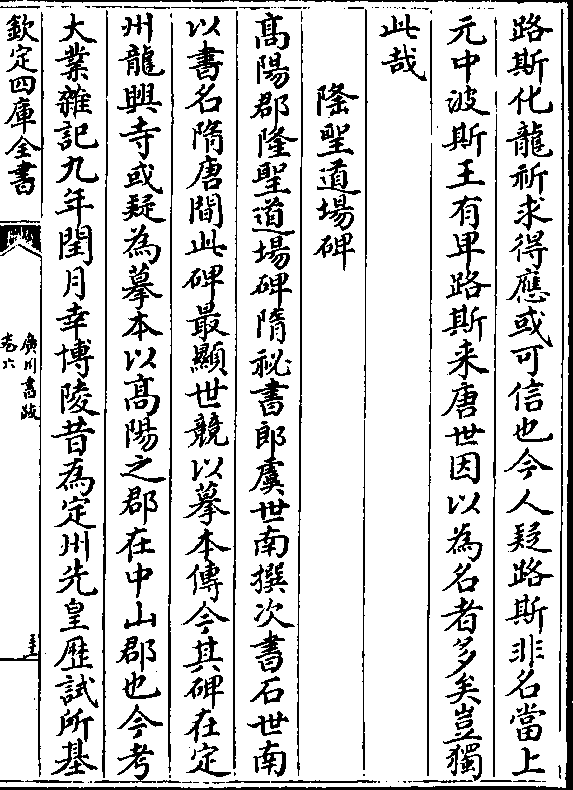 路斯化龍祈求得應或可信也今人疑路斯非名當上
元中波斯王有卑路斯来唐世因以為名者多矣豈獨
此哉
隆聖道場碑
髙陽郡隆聖道場碑隋秘書郎虞世南撰次書石世南
以書名隋唐間此碑最顯世競以摹本傳今其碑在定
州龍興寺或疑為摹本以髙陽之郡在中山郡也今考
大業雜記九年閏月幸博陵昔為定州先皇歴試所基
欽定四庫全書
廣川書跋
卷六